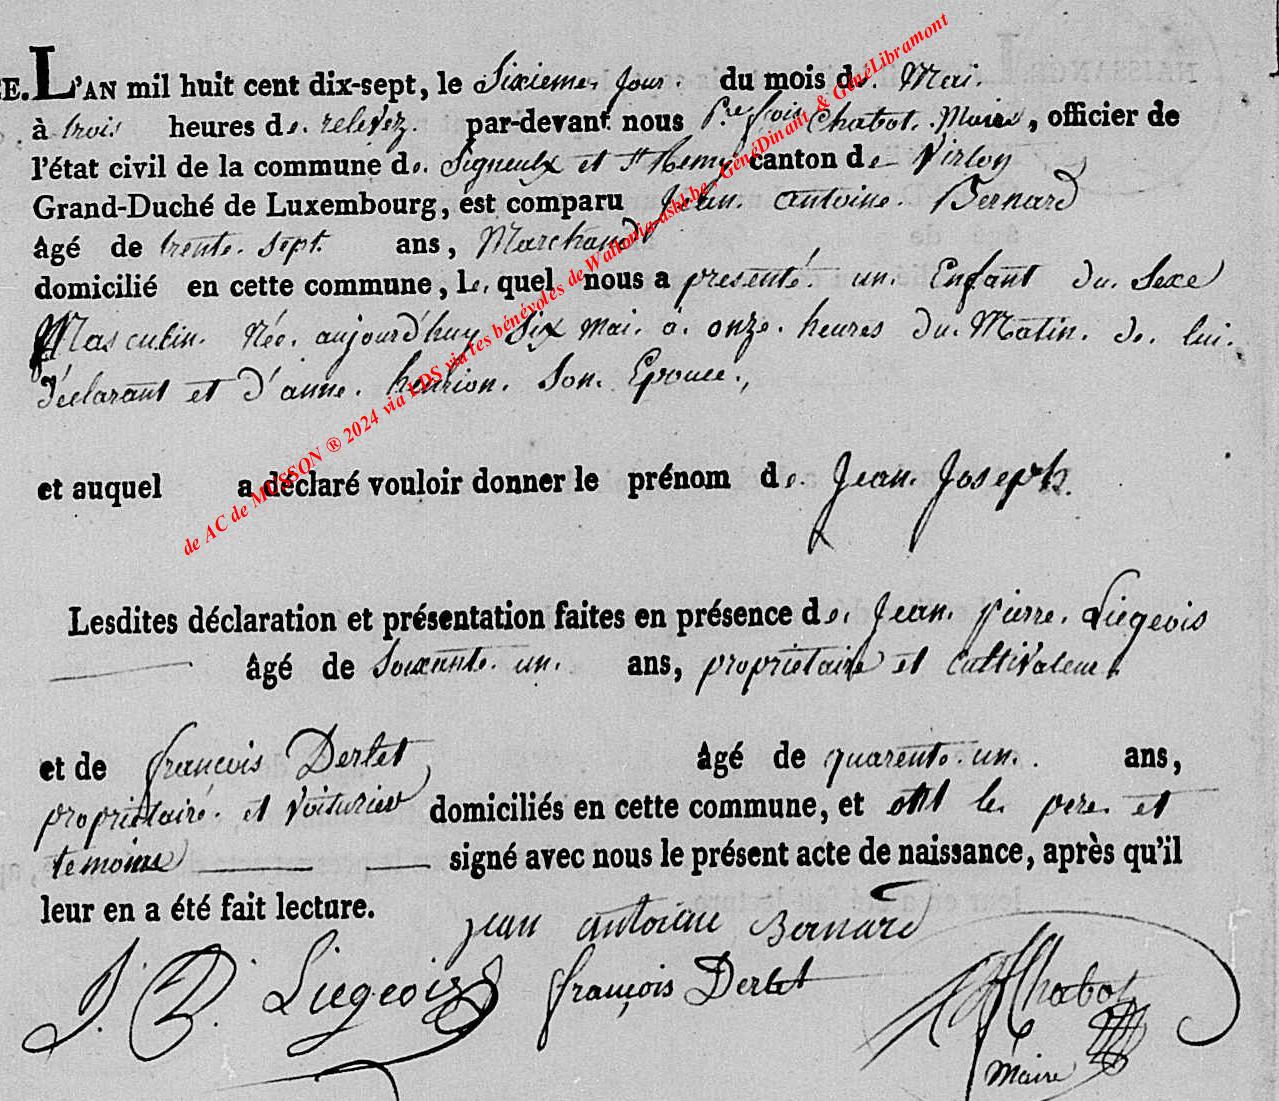 CE. L'AN mil huit cent dix-sept, le Sixieme. Jour. du mois de. Mai.
à trois heures de. relevez. par-devant nous Pre fois Chabot. Maire, officier de
l'état civil de la commune de. Signeulx et St Remy canton de Virton
Grand-Duché de Luxembourg, est comparu Jean. antoine. Bernard
âgé de trente. Sept. ans, Marchand
domicilié en cette commune, le, quel nous a presenté. un. Enfant du. Sexe
Masculin. Née. aujourd'huy Six mai. a. onze. heures du. Matin. de. lui.
déclarant et d'anne. henrion. Son. Epouce.,
et auquel a déclaré vouloir donner le prénom de. Jean. Joseph.
Lesdites déclaration et présentation faites en présence de. Jean. pierre. Liegeois
âgé de Soixante. un. ans, proprietaire et cultivateur.
et de françois Dertet âgé de quarente. un. ans,
proprietaire. et voiturier domiciliés en cette commune, et ont le. pere. et
temoins signé avec nous le présent acte de naissance, après qu'il
leur en a été fait lecture.
jean antoine Bernard
J. P. Liegeois françois Dertet Chabot
Maire
de AC de MUSSON ® 2024 via LDS via les bénévoles de Wallonia-asbl.be, GénéDinant, & GénéLibramont